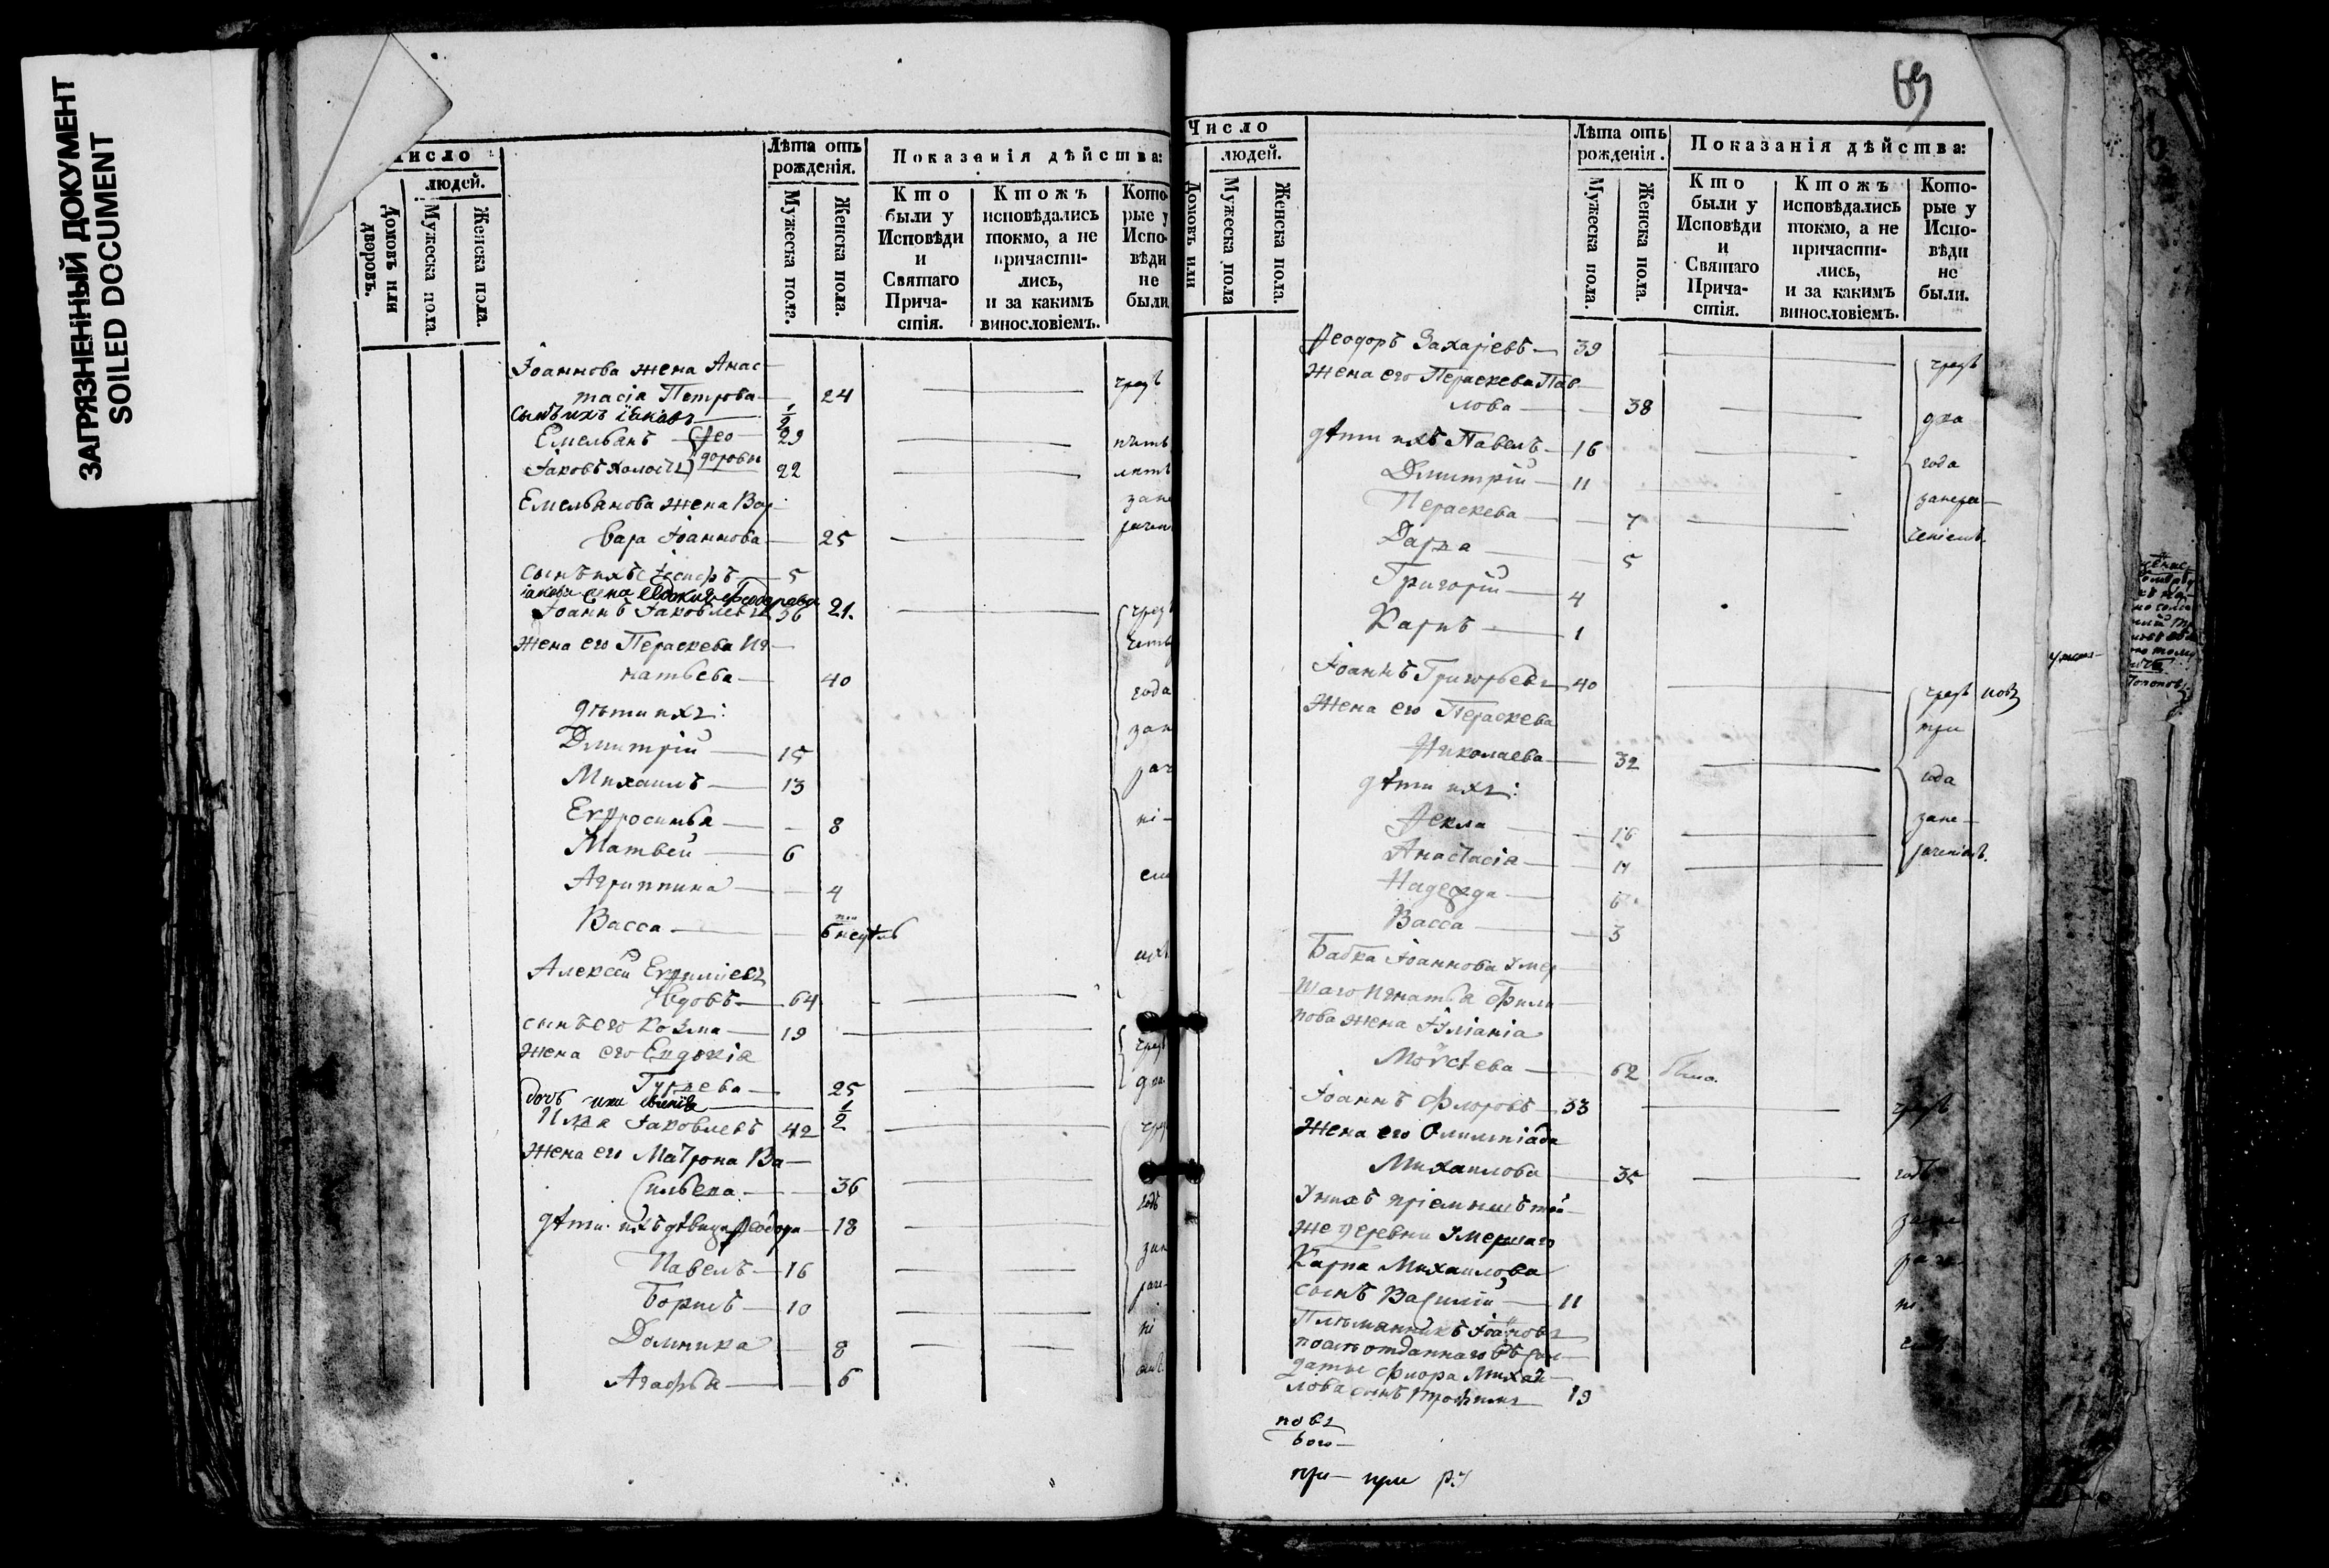 ЗАГРЯЗНЕННЫЙ ДОКУМЕНТ
SOILED DOCUMENT
число
людей.
Домовъ или дворовъ.
Мужеска пола.
Женска пола.
Лѣта отъ рожденія.
Мужеска пола.
Женска пола.
Показанія дѣйства:
Кто были у Исповѣди и Святаго Прича-стія.
Ктожъ исповѣдались токмо, а не причасти-лись, и за какимъ винословіемъ.
Кото-рые у Испо-вѣди не были
Іоаннова жена Анас-
тасія Петрова 24 чрезъ
сынъ ихъ Іаковъ 1/2
Емельянъ Ѳео- 29 пять
Іаковъ холостъ доровы 22 лѣтъ
Емельянова жена Вар зане
вара Іоаннова 25 рачен
сынъ ихъ Іосифъ 5
Іакова жена Евдокия Феодорова 21.
Іоаннъ Іаковлевъ 36 чрез
жена его Пераскева Иг-
натьева 40 года
дѣти ихъ: зан
Димитрій 15
Михаилъ 13 рач
Евфросинья 8 ні-
Матвей 6
Агриппина 4 ем
Васса 6 недѣль
Алексѣй Евфиміевъ
вдовъ 64
сынъ его Козма 19
жена его Евдокія чрезъ
Гурьева 25 два
дочь ихъ 1/2
Илья Іаковлевъ 42 чрез
жена его Матрона Ва-
сильева 36 годъ
дѣти ихъ дѣвица Ѳеодора 18
Павелъ 16 зан
Борисъ 10 раче-
Домника 8 ні
Агафья 6 емъ
69
Число
людей.
Домовъ или
Мужеска пола
Женска пола.
Лѣта отъ рожденія.
Мужеска пола.
Женска пола.
Показанія дѣйства:
Кто были у Исповѣди и Святаго Прича-стія.
Ктожъ исповѣдались токмо, а не причасти-лись, и за какимъ винословіемъ.
Кото-рые у Испо-вѣди не были.
Ѳеодоръ Захаріевъ 39 чрезъ
жена его Пераскева Пав-
лова 38 два
дѣти ихъ Павелъ 16 года
Димитрій 11 занера-
Пераскева 7 ченіемъ.
Дарья 5
Григорій 4
Карпъ 1
Іоаннъ Григорьевъ 40 чрезъ
жена его Пераскева три
Николаева 32 года
дѣти ихъ:
Ѳекла 16 зане-
Анастасія 14 раченіемъ.
Надежда 6
Васса 3
Бабка Іоаннова умер-
шаго Игнатья Фили-
пова жена Іуліанія
Моѵсеева 62
Іоаннъ Флоровъ 33 чрезъ
жена его Олимпіада
Михаилова 35 годъ
У нихъ пріемышъ той
же деревни умершаго зане
Карпа Михаилова раче-
сынъ Василій 11 ні
Племянникъ Іоанновъ емъ.
отданнаго въ сол-
даты Флора Михай-
лова сынъ Трофимъ 19